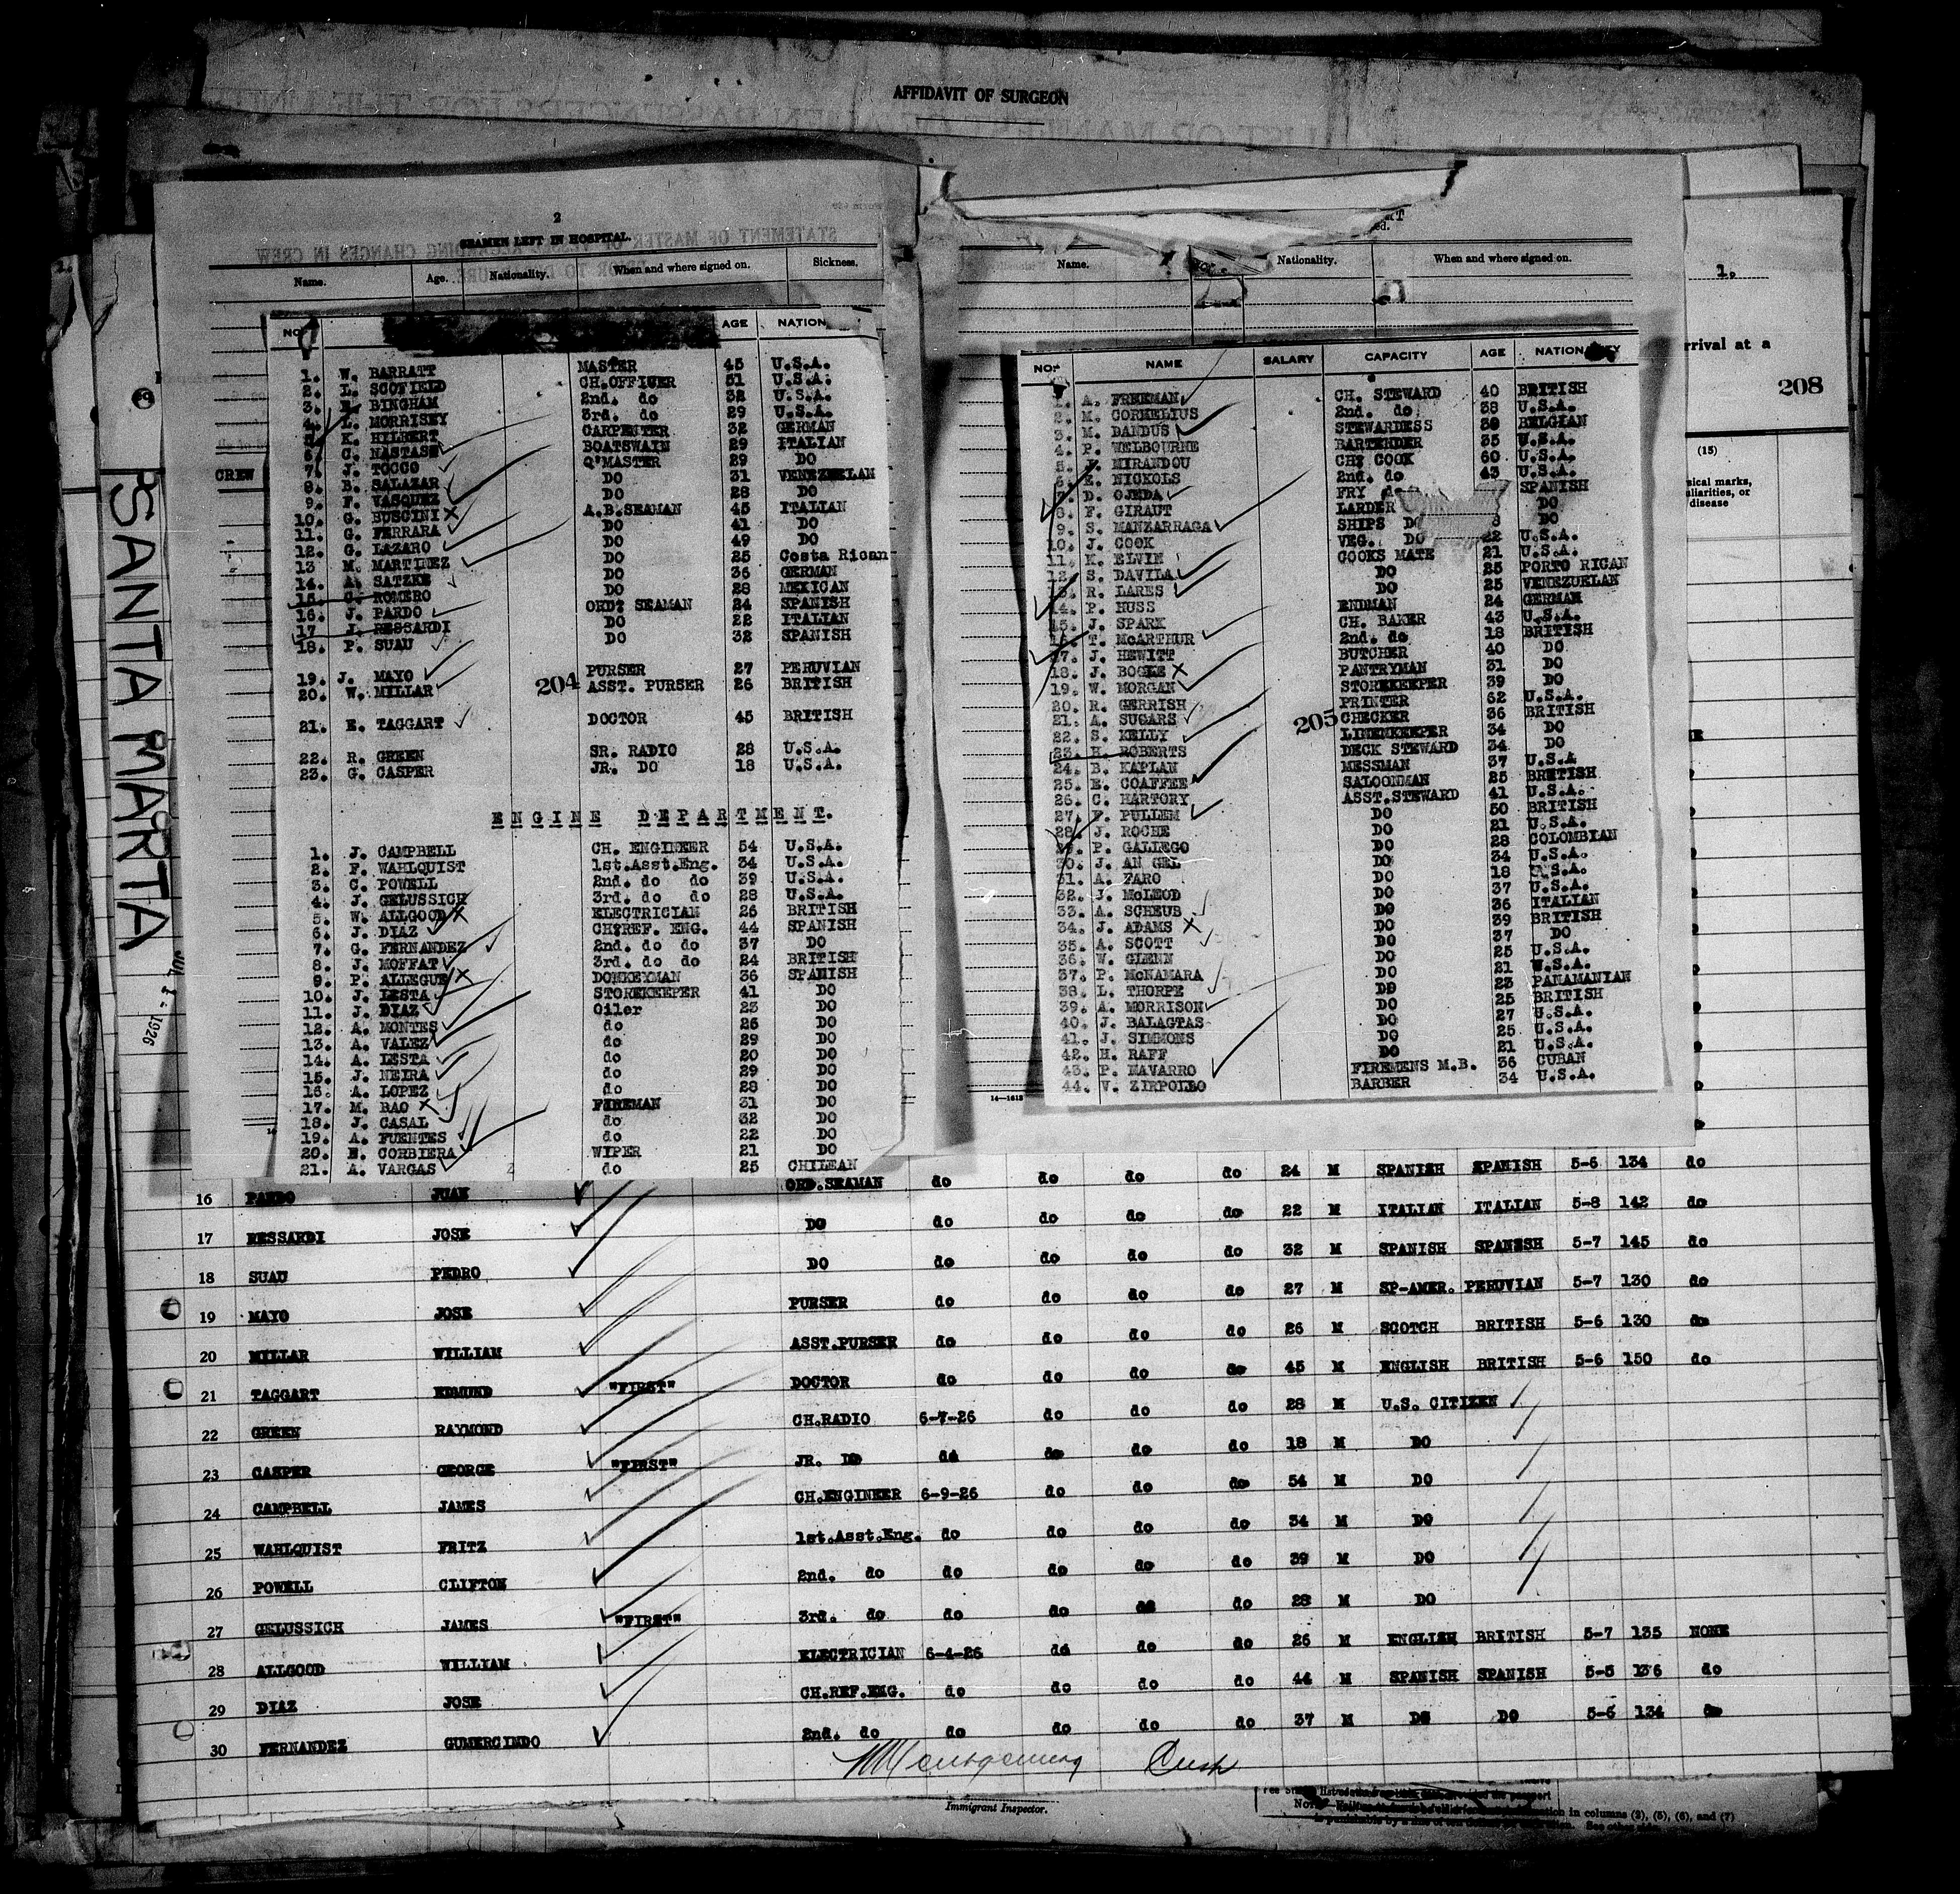 AFFIDAVIT OF SURGEON
2
SEAMEN LEFT IN HOSPITAL.
Name. Age. Nationality. When and where signed on. Sickness.
CREW
SANTA MARTA
1926
NO. AGE NATION
1. W. BARRATT MASTER 45 U.S.A.
2. L. SCOFIELD CH.OFFICER 51 U.S.A.
3. BINGHAM 2nd. do 32 U.S.A.
4. L. MORRISEY 3rd. do 29 U.S.A.
5. K. HILBERT CARPENTER 32 GERMAN
6. C. NASTASE BOATSWAIN 29 ITALIAN
7. J. TOCCO Q'MASTER 29 DO
8. B. SALAZAR DO 31 VENEZUELAN
9. F. VASQUEZ DO 28 DO
10. G. BUSCINI A.B.SEAMAN 45 ITALIAN
11. G. FERRARA DO 41 DO
12. G. LAZARO DO 49 DO
13 M. MARTINEZ DO 25 Costa Rican
14. A. SATZKE DO 36 GERMAN
15. C. ROMERO DO 28 MEXICAN
16. J. PARDO ORD. SEAMAN 24 SPANISH
17 J. RESSARDI DO 22 ITALIAN
18. P. SUAU DO 32 SPANISH
19. J. MAYO PURSER 27 PERUVIAN
20. W. MILLAR 204 ASST. PURSER 26 BRITISH
21. E. TAGGART DOCTOR 45 BRITISH
22. R. GREEN SR. RADIO 28 U.S.A.
23. G. CASPER JR. DO 18 U.S.A.
ENGINE DEPARTMENT.
1. J. CAMPBELL CH. ENGINEER 54 U.S.A.
2. F. WAHLQUIST 1st.Asst.Eng. 34 U.S.A.
3. C. POWELL 2nd. do do 39 U.S.A.
4. J. GELUSSICH 3rd. do do 28 U.S.A.
5. W. ALLGOOD ELECTRICIAN 26 BRITISH
6. J. DIAZ CH.REF. ENG. 44 SPANISH
7. G. FERNANDEZ 2nd. do do 37 DO
8. J. MOFFAT 3rd. do do 24 BRITISH
9. P. ALLEGUE DONKEYMAN 36 SPANISH
10. J. LESTA STOREKEEPER 41 DO
11. J. DIAZ Oiler 23 DO
12. A. MONTES do 26 DO
13. A. VALEZ do 29 DO
14. A. LESTA do 20 DO
15. J. NEIRA do 29 DO
16. A. LOPEZ do 28 DO
17. M. BAO FIREMAN 31 DO
18. J. CASAL do 32 DO
19. A. FUENTES do 22 DO
20. E. CORBIERA WIPER 21 DO
21. A. VARGAS do 25 CHILEAN
Name. Nationality. When and where signed on.
NO. NAME SALARY CAPACITY AGE NATION
1. A. FREEMAN CH. STEWARD 40 BRITISH
2. M. CORNELIUS 2nd. do 38 U.S.A.
3. M. DANDUS STEWARDESS 39 BELGIAN
4. P. WELBOURNE BARTENDER 35 U.S.A.
5. MIRANDOU CH. COOK 60 U.S.A.
6. E. NICKOLS 2nd. do 43 U.S.A.
7. D. OJEDA FRY SPANISH
8. F. GIRAUT LARDER DO
9. S. MANZARRAGA SHIPS DO DO
10. J. COOK VEG. DO 22 U.S.A.
11. K. ELVIN COOKS MATE 21 U.S.A.
12. S. DAVILA DO 25 PORTO RICAN
13. R. LARES DO 25 VENEZUELAN
14. P. HUSS ENDMAN 24 GERMAN
15. J. SPARK CH. BAKER 43 U.S.A.
16. T. McARTHUR 2nd. do 18 BRITISH
17. J. HEWITT BUTCHER 40 DO
18. J. BOGKE PANTRYMAN 31 DO
19. W. MORGAN STOREKEEPER 39 DO
20. R. GERRISH PRINTER 62 U.S.A.
21. A. SUGARS 205 CHECKER 36 BRITISH
22. S. KELLY LINENKEEPER 34 DO
23. H. ROBERTS DECK STEWARD 34 DO
24. B. KAPLAN MESSMAN 37 U.S.A
25. E. COAFFEE SALOONMAN 25 BRITISH
26. C. HARTORY ASST.STEWARD 41 U.S.A.
27. F. PULLEM DO 50 BRITISH
28. J. ROCHE DO 21 U.S.A.
29. P. GALLEGO DO 28 COLOMBIAN
30. J. AN GEL DO 34 U.S.A.
31. A. FARO DO 18 U.S.A.
32. J. McLEOD DO 37 U.S.A.
33. A. SCHEUB DO 36 ITALIAN
34. J. ADAMS DO 39 BRITISH
35. A. SCOTT DO 37 DO
36. W. GLENN DO 25 U.S.A.
37. P. McNAMARA DO 21 U.S.A.
38. L. THORPE DO 23 PANAMANIAN
39. A. MORRISON DO 25 BRITISH
40. J. BALAGTAS DO 27 U.S.A.
41. J. SIMMONS DO 25 U.S.A.
42. H. RAFF DO 21 U.S.A.
43. P. NAVARRO FIREMENS M.B. 36 CUBAN
44. V. ZIRPOLLO BARBER 34 U.S.A.
14—1613
1.
rrival at a
208
(15)
sical marks,
uliarities, or
disease
16 PARDO JUAN ORD.SEAMAN do do do do 24 M SPANISH SPANISH 5-6 134 do
17 RESSARDI JOSE DO do do do do 22 M ITALIAN ITALIAN 5-8 142 do
18 SUAU PEDRO DO do do do do 32 M SPANISH SPANISH 5-7 145 do
19 MAYO JOSE PURSER do do do do 27 M SP-AMER. PERUVIAN 5-7 130 do
20 MILLAR WILLIAM ASST.PURSER do do do do 26 M SCOTCH BRITISH 5-6 130 do
21 TAGGART EDMUND "FIRST" DOCTOR do do do do 45 M ENGLISH BRITISH 5-6 150 do
22 GREEN RAYMOND CH.RADIO 6-7-26 do do do 28 M U.S. CITIZEN
23 CASPER GEORGE "FIRST" JR. DO do do do do 18 M DO
24 CAMPBELL JAMES CH.ENGINEER 6-9-26 do do do 54 M DO
25 WAHLQUIST FRITZ 1st.Asst.Eng. do do do do 34 M DO
26 POWELL CLIFTON 2nd. do do do do do 39 M DO
27 GELUSSICH JAMES "FIRST" 3rd. do do do do do 28 M DO
28 ALLGOOD WILLIAM ELECTRICIAN 6-4-26 do do do 26 M ENGLISH BRITISH 5-7 135 NONE
29 DIAZ JOSE CH.REF.ENG. do do do do 44 M SPANISH SPANISH 5-5 136 do
30 FERNANDEZ GUMERCINDO 2nd. do do do do do 37 M DO DO 5-6 134 do
Montgomery
Immigrant Inspector.
in columns (3), (5), (6), and (7)
See other side.